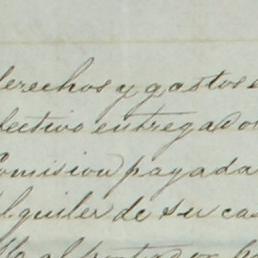 derechos y gastos e
fectivo entregados
Comision pagada
Alquiler de su cas
al portador